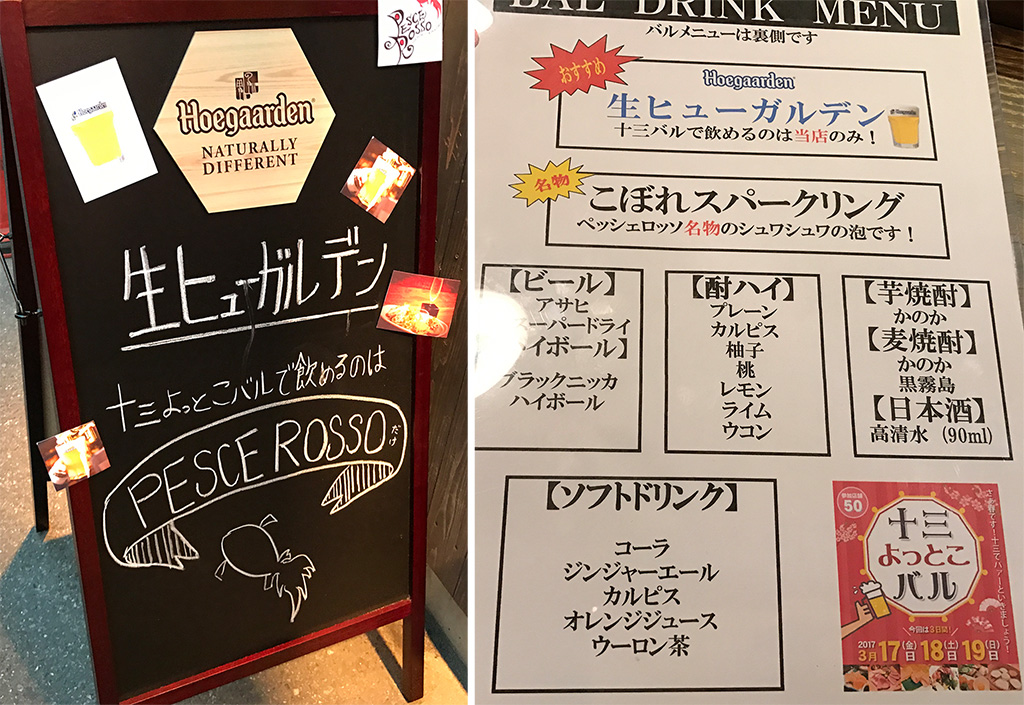 PESCE
ROSSO
Hoegaarden
NATURALLY
DIFFERENT
生ヒューガルデン
十三よっとこバルで飲めるのは
PESCE ROSSOだけ
BAL DRINK MENU
バルメニューは裏側です
おすすめ
Hoegaarden
生ヒューガルデン
十三バルで飲めるのは当店のみ！
名物
こぼれスパークリング
ペッシェロッソ名物のシュワシュワの泡です！
【ビール】
アサヒ
ーパードライ
イボール】
ブラックニッカ
ハイボール
【酎ハイ】
プレーン
カルピス
柚子
桃
レモン
ライム
ウコン
【芋焼酎】
かのか
【麦焼酎】
かのか
黒霧島
【日本酒】
高清水（90ml）
【ソフトドリンク】
コーラ
ジンジャーエール
カルピス
オレンジジュース
ウーロン茶
参加店舗
50
十三
よっとこ
バル
今回は3日間！
2017
3月17日(金)18日(土)19日(日)